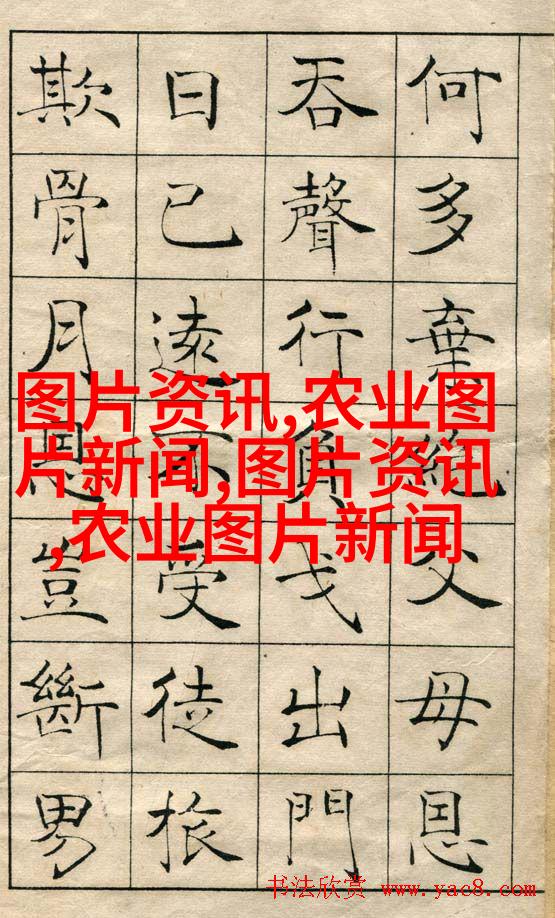 何多棄絕父母恩
吞聲行負戈出門
日已遠不受徒旅
欺骨月恩豈斷男
图片资讯,农业图
片新闻,图片资讯
,农业图片新闻
书法欣赏 www.yac8.com